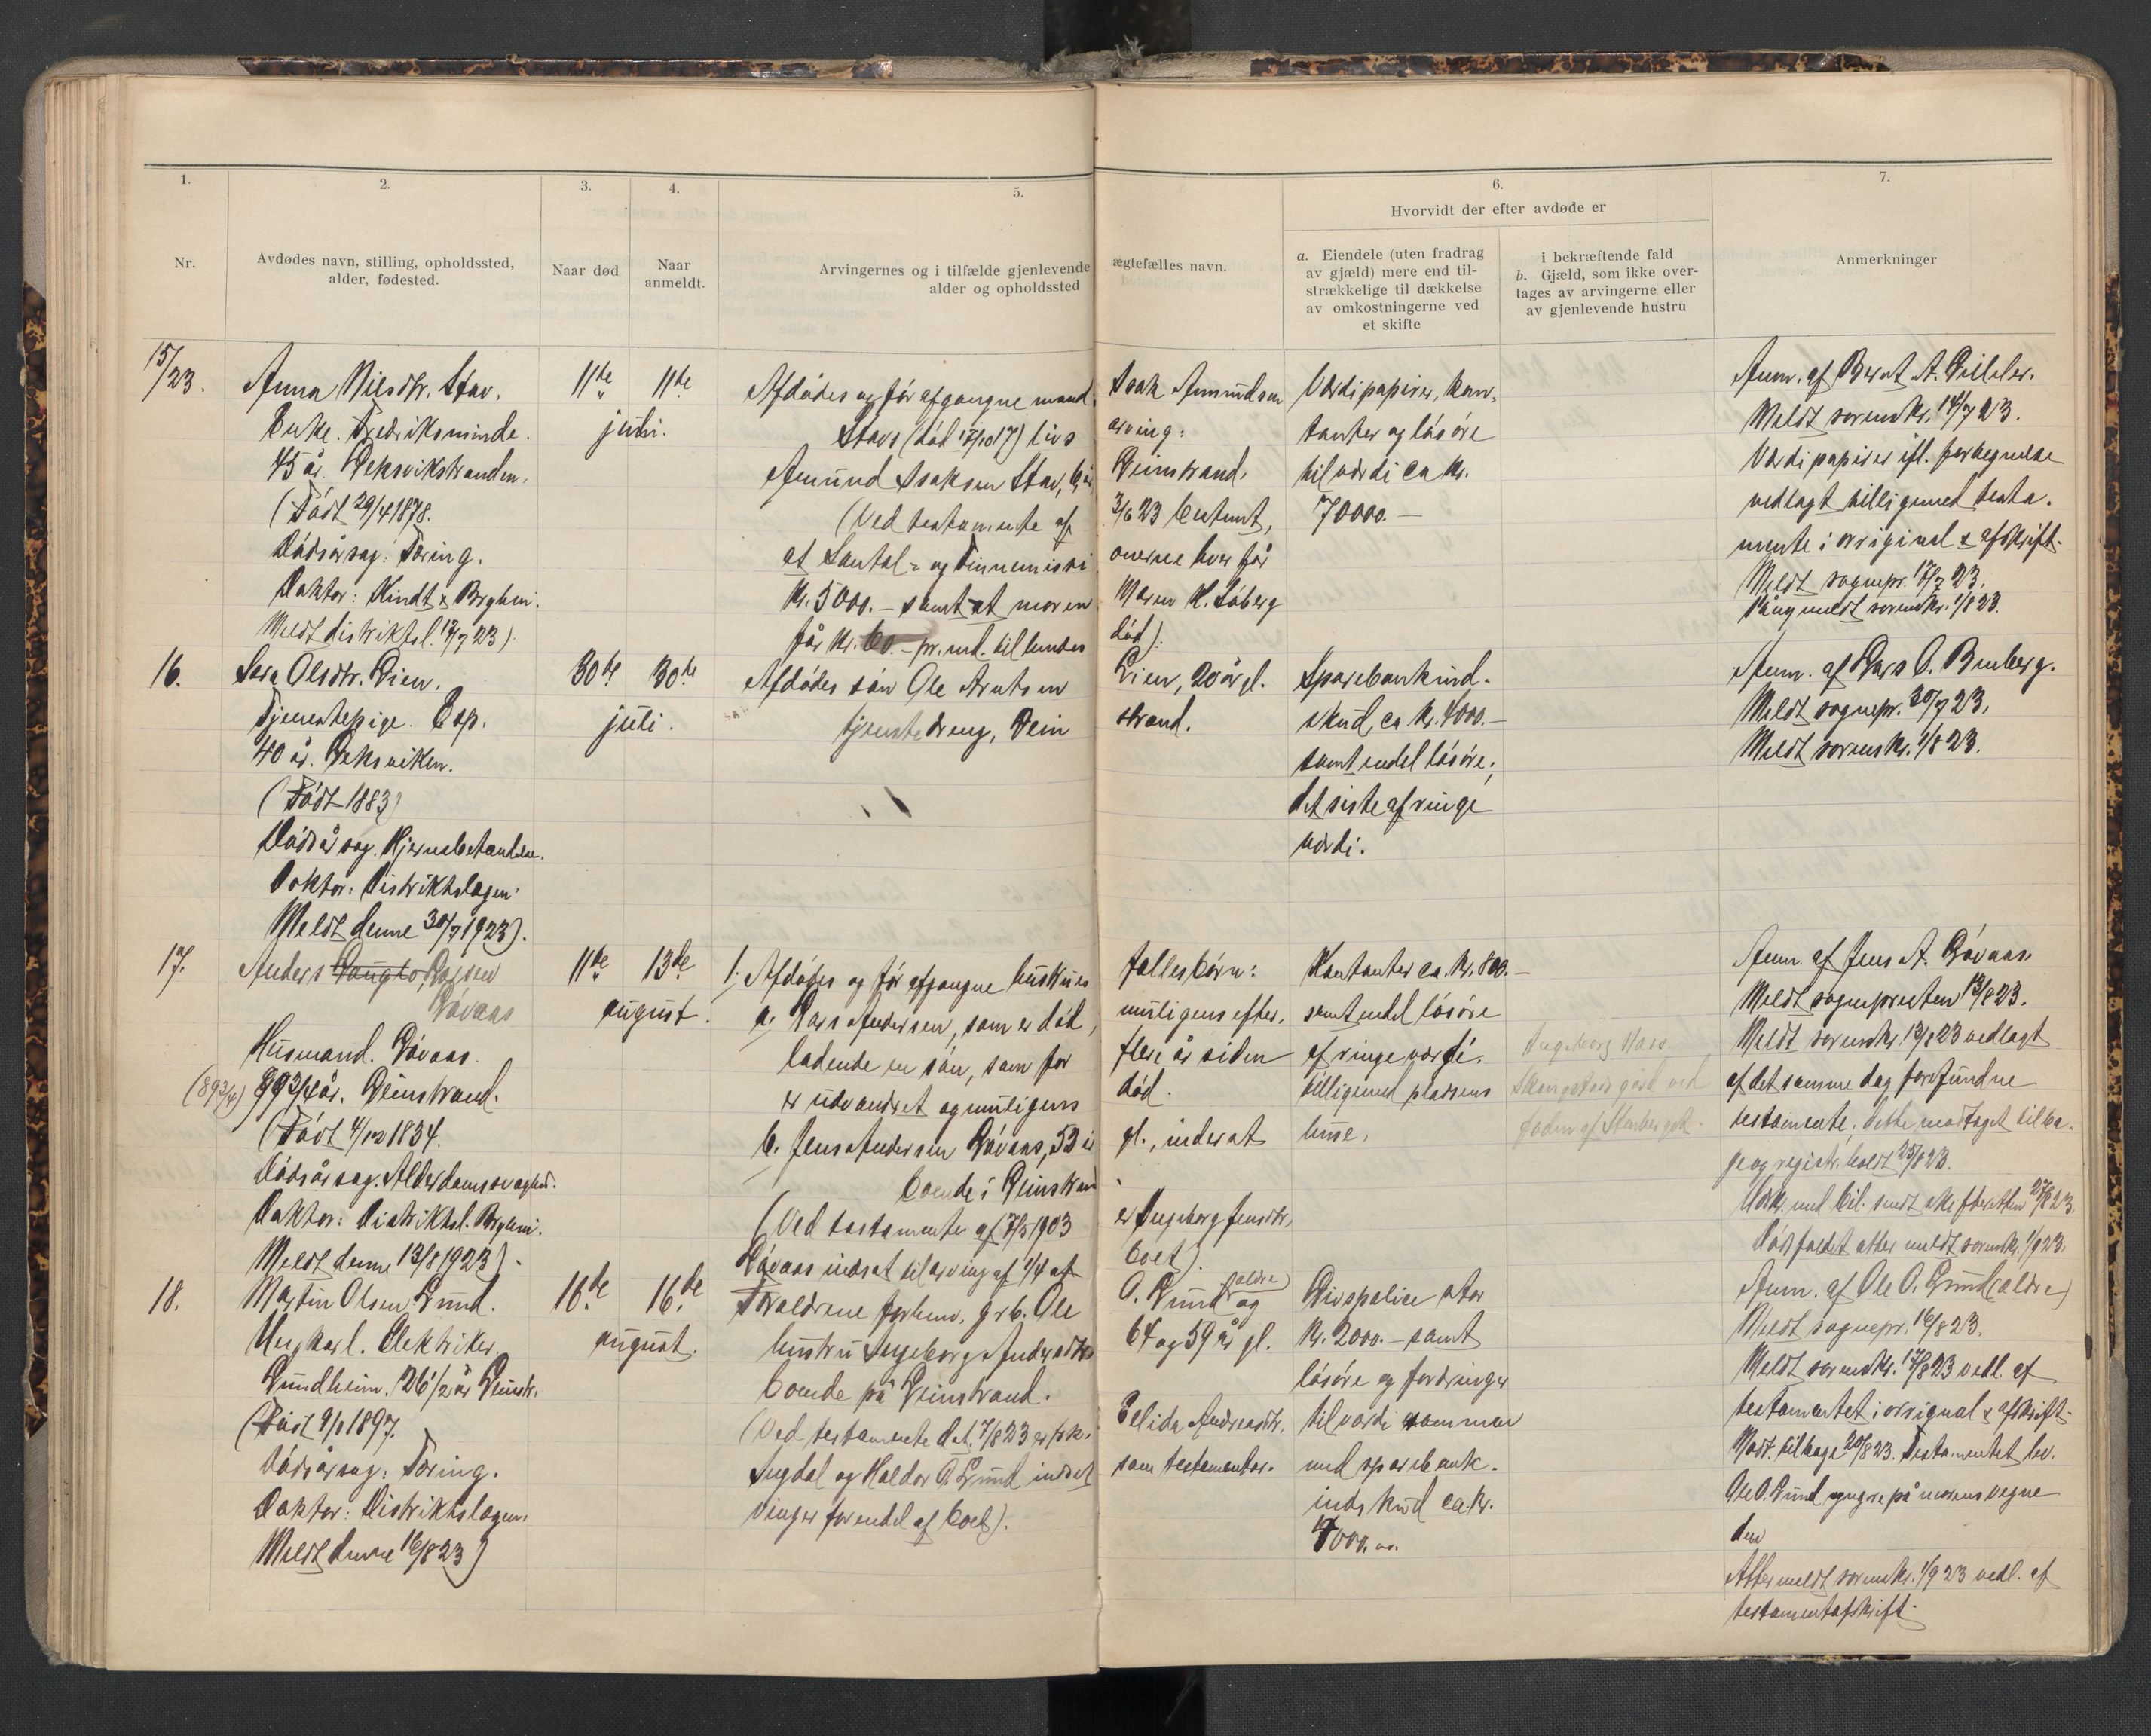 1.
2.
3.
4.
5.
6.
7.
Nr.
Avdødes navn, stilling, opholdssted,
alder, fødested.
Naar død
Naar
anmeldt.
Arvingernes og i tilfælde gjenlevende ægtefælles navn.
alder og opholdssted
Hvorvidt der efter avdøde er
a. Eiendele (uten fradrag
av gjæld) mere end til-
strækkelige til dækkelse
av omkostningerne ved
et skifte
i bekræftende fald
b. Gjæld, som ikke over-
tages av arvingerne eller
av gjenlevende hustru
Anmerkninger
15/23.
Anna Nilsdtr. Stav.
Enke. Fredriksminde.
45 år. Leksvikstranden.
(Født 29/4 1878.
Dødsårsag: Tæring.
Doktor: Kindt & Bryhni.
Meldt distriktsl. 12/7 23).
11te
11te
juli.
Afdødes og før afgangne mand Isak Amundsen
Stavs (død 15/10 17) livsarving:
Amund Isaksen Stav, 6 år, Leinstrand.
(Ved testamente af 3/6 23 bestemt,
at Santal- og Finnemissionerne hver får
Kr. 5000.- samt at moren Maren K. Søberg
får Kr. 60.- pr. md. til hendes død).
Værdipapirer, kon-
tanter og løsøre
til værdi ca Kr.
70000.-
Anm. af Bernt A.
Meldt sorenskr. 14/7 23.
Værdipapirer ifl. fortegnelse
vedlagt tilligemed testa-
mente i original & afskrift.
Meldt sognepr. 17/7 23.
Påny meldt sorenskr. 1/8 23.
16.
Sara Olsdtr. Lien.
Tjenestepige. Esp.
40 år. Leksviken.
(Født 1883)
Dødsårsag. Hjernebetændelse.
Doktor: Distriktslægen.
Meldt denne 30/7 1923).
30te
30te
juli.
Afdødes søn Ole Arntsen Lien, 20 år gl.
tjenestedreng, Leinstrand.
Sparebankind-
skud, ca Kr. 4000.-
samt endel løsøre;
det siste af ringe
værdi.
Anm. af Lars O. Bruberg.
Meldt sognepr. 30/7 23.
Meldt sorenskr. 1/8 23.
17.
Anders Larsen
Løvaas
Husmand. Løvaas.
(89 3/4) 89 3/4 år. Leinstrand.
(Født 4/12 1834.
Dødsårsag. Alderdomssvaghed.
Doktor: Distriktsl. Bryhni.
Meldt denne 13/8 1923).
11te
13de
august.
1. Afdødes og før afgangne hustrues fællesbørn:
a. Lars Andersen, som er død, muligens efter-
ladende en søn, som for flere år siden
er udvandret og muligens død.
b. Jens Andersen Løvaas, 53 år gl., inderst
boende i Leinstrand.
(Ved testamente af 7/5 1903 er Ingeborg Jensdtr.
Løvaas indsat til arving af 1/4 af boet).
Kontanter ca. Kr. 800.-
samt endel løsøre
af ringe værdi.
tilligemed pladsens
huse.
Ingeborg
Anm. af Jens A. Løvaas.
Meldt sognepresten 13/8 23.
Meldt sorenskr. 13/8 23 vedlagt
af det samme dag forefundne
testamente; dette modtaget tilba-
ge og registr. holdt 25/8 23.
Utsk. med bil. sendt skifteretten 27/8 23.
Dødsfaldet atter meldt sorenskr. 1/9 23.
18.
Martin Olsen Lund.
Ungkarl. Elektriker.
Lundheim. 26 1/2 år Leinstr.
(Født 9/1 1897.
Dødsårsag: Tæring.
Doktor: Distriktslægen.
Meldt denne 16/8 23)
16de
16de
august.
Forældrene forhenv. grb. Ole O. Lund (ældre) og
hustru Ingeborg Andersdtr. 64 og 59 år gl.
boende på Leinstrand.
(Ved testamente dat. 7/8 23 er frk. Elida Andreasdtr.
Sugdal og Haldor O. Lund indsat som testamentar-
vinger for endel af boet).
Livspolice stor
Kr. 2000.- samt
løsøre og fordringer
til værdi sammen
med sparebank-
indskud ca. Kr.
4000.-
Anm. af Ole O. Lund (ældre)
Meldt sognepr. 16/8 23.
Meldt sorenskr. 17/8 23 vedl. af
testamentet i original & afskrift.
Modt. tilbage 20/8 23. Testamentet lev.
Ole O. Lund yngre på morens vegne
den
Atter meldt sorenskr. 1/9 23 vedl. af
testamentafskrift.